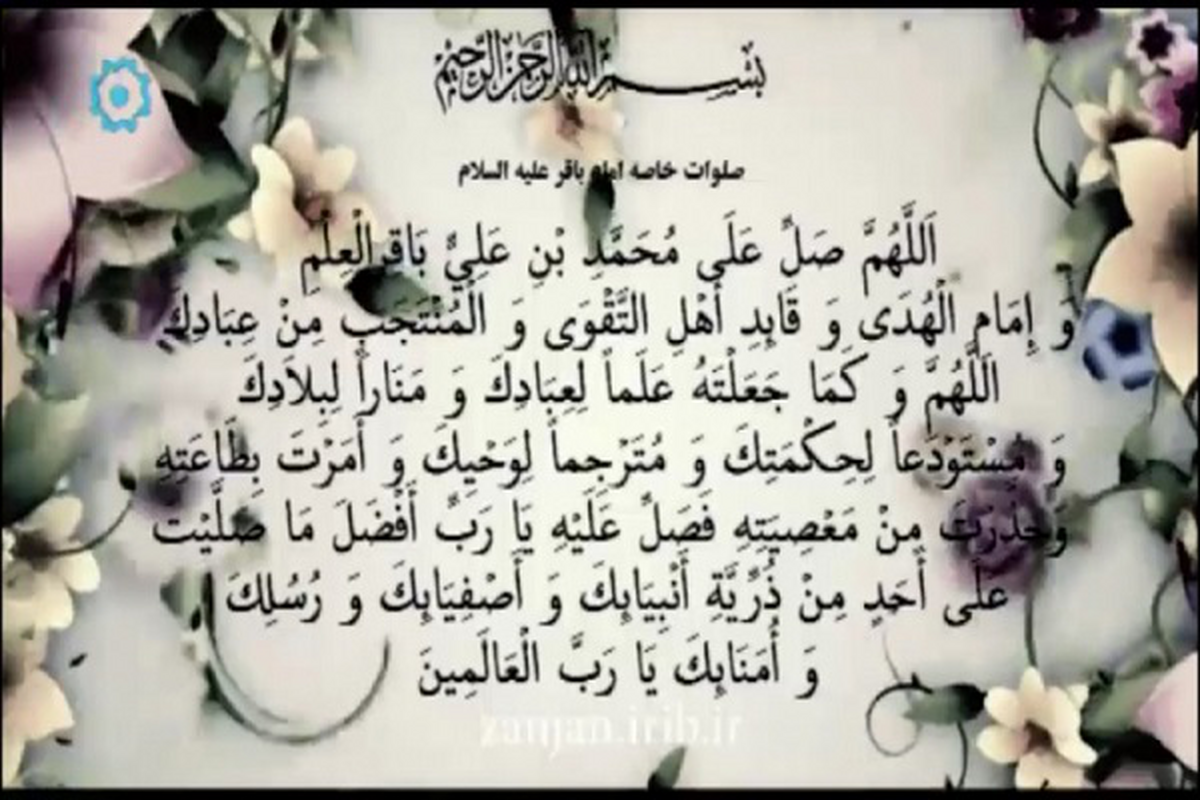 بسم الله الرحمن الرحیم
صلوات خاصه امام باقر علیه السلام
اَللَّهُمَّ صَلِّ عَلَى مُحَمَّدِ بْنِ عَلِيٍّ بَاقِرِ الْعِلْمِ
وَ إِمَامِ الْهُدَى وَ قَايِدِ أَهْلِ التَّقْوَى وَ الْمُنْتَجَبِ مِنْ عِبَادِكَ
اَللَّهُمَّ وَ كَمَا جَعَلْتَهُ عَلَماً لِعِبَادِكَ وَ مَنَاراً لِبِلاَدِكَ
وَ مُسْتَوْدَعاً لِحِكْمَتِكَ وَ مُتَرْجِماً لِوَحْيِكَ وَ أَمَرْتَ بِطَاعَتِهِ
وَحَذَّرْتَ مِنْ مَعْصِيَتِهِ فَصَلِّ عَلَيْهِ يَا رَبِّ أَفْضَلَ مَا صَلَّيْتَ
عَلَى أَحَدٍ مِنْ ذُرِّيَّةِ أَنْبِيَايِكَ وَ أَصْفِيَايِكَ وَ رُسُلِكَ
وَ أُمَنَايِكَ يَا رَبَّ الْعَالَمِينَ
zanjan.irib.ir